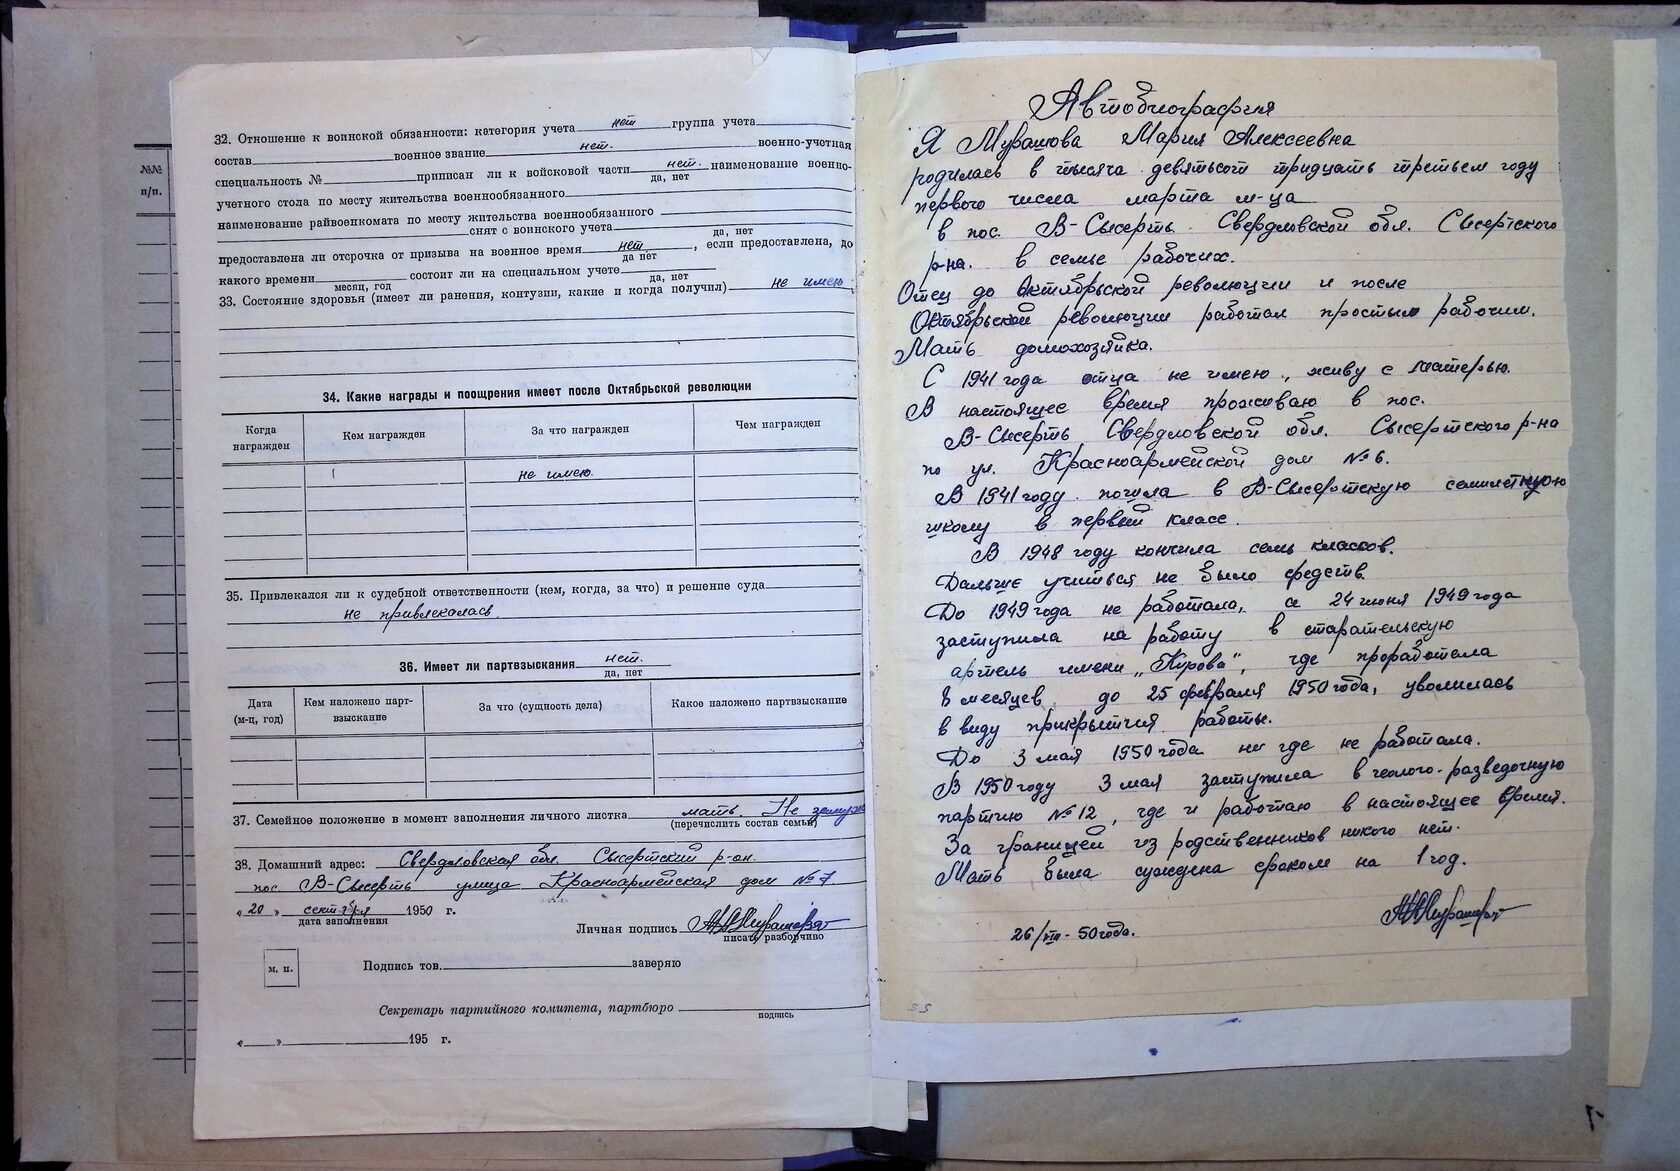 №№
п/п.
32. Отношение к воинской обязанности: категория учета нет группа учета
состав военное звание нет. военно-учетная
специальность № приписан ли к войсковой части нет. наименование военно-
да, нет
учетного стола по месту жительства военнообязанного
наименование райвоенкомата по месту жительства военнообязанного
снят с воинского учета
да, нет
предоставлена ли отсрочка от призыва на военное время нет, если предоставлена, до
да нет
какого времени состоит ли на специальном учете
месяц, год да, нет
33. Состояние здоровья (имеет ли ранения, контузии, какие и когда получил) не имею
34. Какие награды и поощрения имеет после Октябрьской революции
Когда награжден Кем награжден За что награжден Чем награжден
не имею.
35. Привлекался ли к судебной ответственности (кем, когда, за что) и решение суда
не привлекалась.
36. Имеет ли партвзыскания нет.
да, нет
Дата (м-ц, год) Кем наложено партвзыскание За что (сущность дела) Какое наложено партвзыскание
37. Семейное положение в момент заполнения личного листка мать. Не замужем
(перечислить состав семьи)
38. Домашний адрес: Свердловская обл. Сысертский р-он.
пос. В-Сысерть улица Красноармейская дом № 7.
„20„ сентября 1950 г.
дата заполнения
Личная подпись АМурашова
писать разборчиво
м. п. Подпись тов. заверяю
Секретарь партийного комитета, партбюро
подпись
« » 195 г.
Автобиография
Я Мурашова Мария Алексеевна
родилась в тысяча девятьсот тридцать третьем году
первого числа марта м-ца
в пос. В-Сысерть Свердловской обл. Сысертского
р-на. в семье рабочих.
Отец до Октябрьской революции и после
Октябрьской революции работал простым рабочим.
Мать домохозяйка.
С 1941 года отца не имею, живу с матерью.
В настоящее время проживаю в пос.
В-Сысерть Свердловской обл. Сысертского р-на
по ул. Красноармейской дом № 6.
В 1941 году пошла в В-Сысертскую семилетнюю
школу в первый класс.
В 1948 году кончила семь классов.
Дальше учиться не было средств.
До 1949 года не работала, а 24 июня 1949 года
заступила на работу в старательскую
артель имени „Кирова", где проработала
8 месяцев до 25 февраля 1950 года, уволилась
в виду прикрытия работы.
До 3 мая 1950 года ни где не работала.
В 1950 году 3 мая заступила в геолого-разведочную
партию № 12, где и работаю в настоящее время.
За границей из родственников никого нет.
Мать была суждена сроком на 1 год.
26/VIII-50 года.
АМурашова